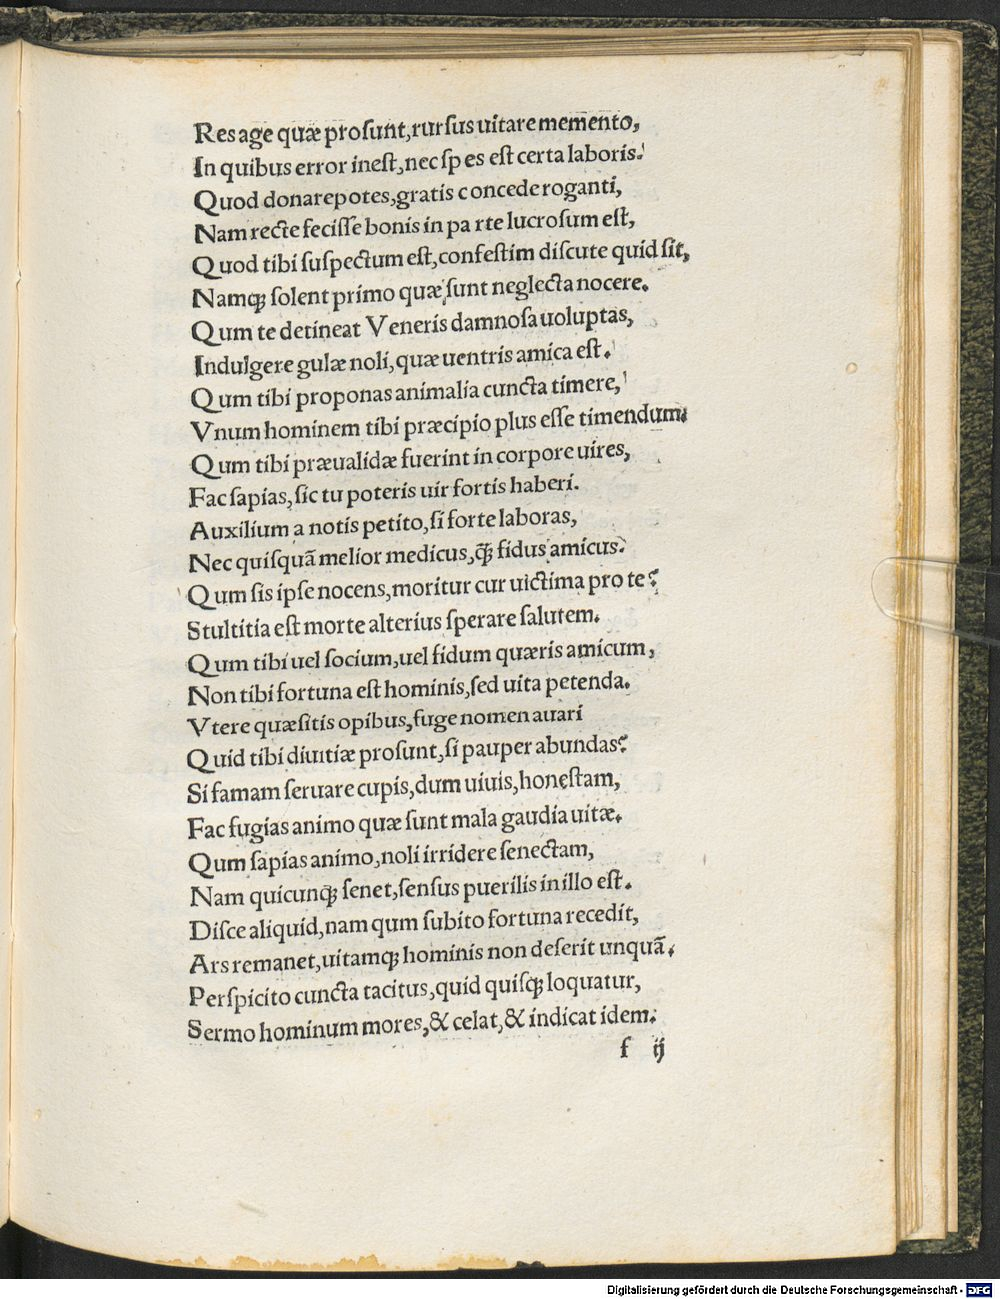 Res age quæ proſunt, rurſus uitare memento,
In quibus error ineſt, nec ſpes eſt certa laboris.
Quod donare potes, gratis concede roganti,
Nam recte feciſſe bonis in parte lucroſum eſt,
Quod tibi ſuſpectum eſt, confeſtim diſcute quid ſit,
Namqꝫ ſolent primo quæ ſunt neglecta nocere.
Qum te detineat Veneris damnoſa uoluptas,
Indulgere gulæ noli, quæ uentris amica eſt.
Qum tibi proponas animalia cuncta timere,
Vnum hominem tibi præcipio plus eſſe timendum.
Qum tibi præualidæ fuerint in corpore uires,
Fac ſapias, ſic tu poteris uir fortis haberi.
Auxilium a notis petito, ſi forte laboras,
Nec quiſquã melior medicus, q̃ꝫ fidus amicus.
Qum ſis ipſe nocens, moritur cur uictima pro te?
Stultitia eſt morte alterius ſperare ſalutem.
Qum tibi uel ſocium, uel fidum quæris amicum,
Non tibi fortuna eſt hominis, ſed uita petenda.
Vtere quæſitis opibus, fuge nomen auari
Quid tibi diuitiæ proſunt, ſi pauper abundas?
Si famam ſeruare cupis, dum uiuis, honeſtam,
Fac fugias animo quæ ſunt mala gaudia uitæ.
Qum ſapias animo, noli irridere ſenectam,
Nam quicunqꝫ ſenet, ſenſus puerilis in illo eſt.
Diſce aliquid, nam qum ſubito fortuna recedit,
Ars remanet, uitamqꝫ hominis non deſerit unquã.
Perſpicito cuncta tacitus, quid quiſqꝫ loquatur,
Sermo hominum mores, & celat, & indicat idem.
f ij
Digitalisierung gefördert durch die Deutsche Forschungsgemeinschaft - DFG